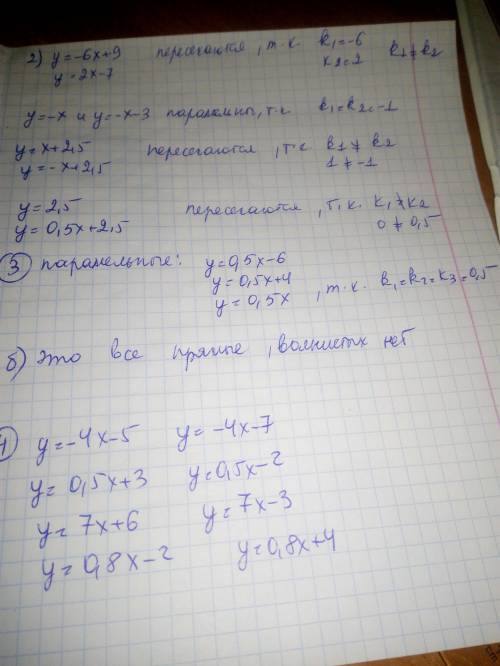 2) y=-6x+9 пересекаются, т.к. k₁=-6 k₁≠k₂
y=2x-7 k₂=2
y=-x и y=-x-3 паралельны, т.к k₁=k₂=-1
y=x+2,5 пересекаются, т.к k₁≠k₂
y=-x+2,5 1≠-1
y=2,5 пересекаются, т.к. k₁≠k₂
y=0,5x+2,5 0≠0,5
3) паралельные: y=0,5x-6
y=0,5x+4
y=0,5x, т.к. k₁=k₂=k₃=0,5
б) это все прямые, волнистых нет
4) y=-4x-5 y=-4x-7
y=0,5x+3 y=0,5x-2
y=7x+6 y=7x-3
y=0,8x-2 y=0,8x+4